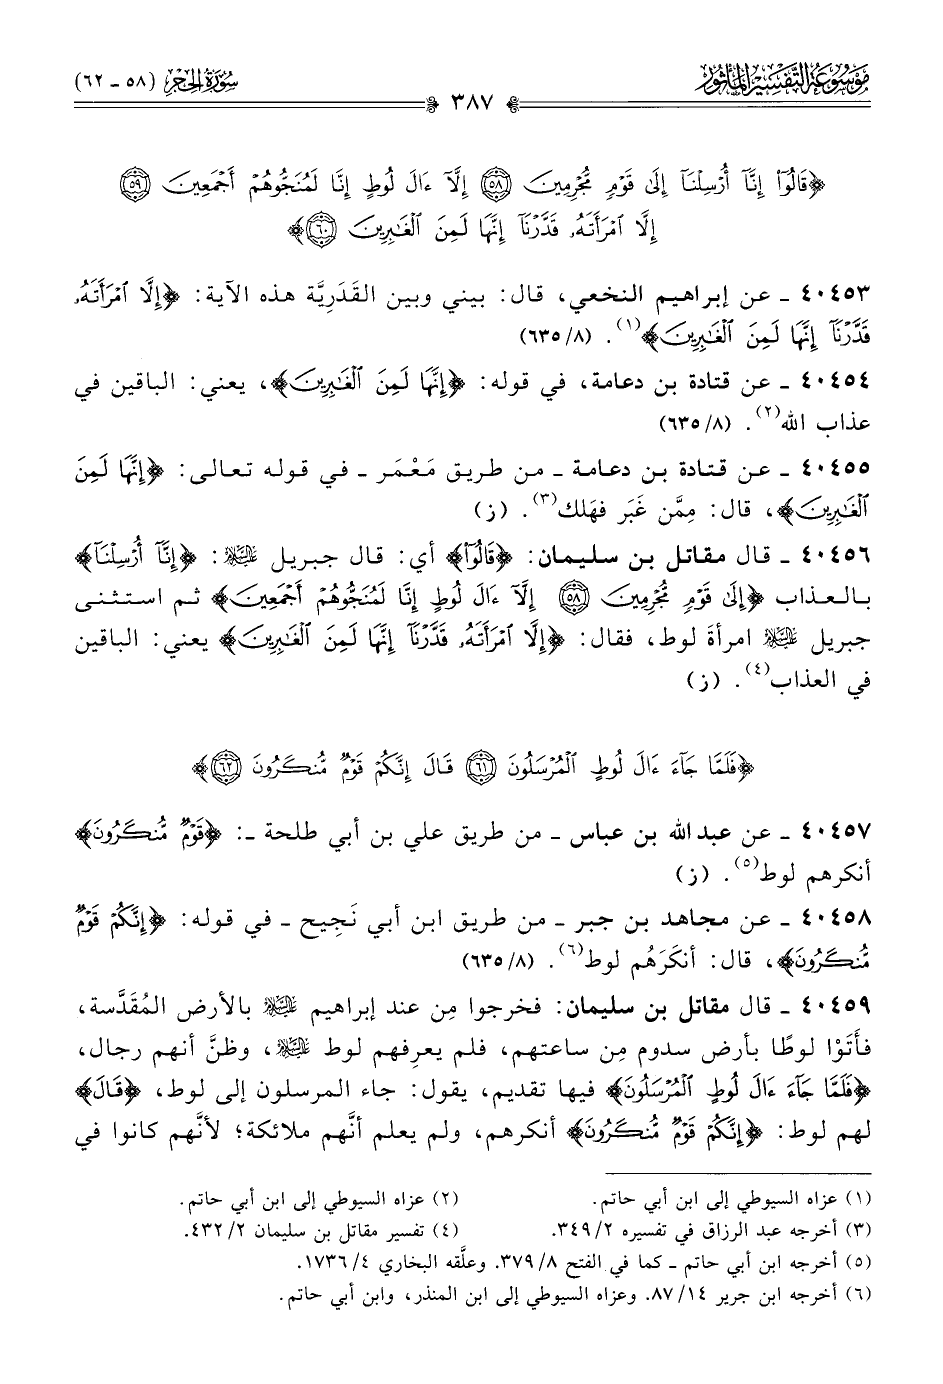 موسوعة التفسير المأثور
سورة الحجر (٥٨ ـ ٦٢)
٣٨٧
﴿قَالُوٓا۟ إِنَّآ أُرْسِلْنَآ إِلَىٰ قَوْمٍ مُّجْرِمِينَ ٥٨ إِلَّآ ءَالَ لُوطٍ إِنَّا لَمُنَجُّوهُمْ أَجْمَعِينَ ٥٩
إِلَّا ٱمْرَأَتَهُۥ قَدَّرْنَآ إِنَّهَا لَمِنَ ٱلْغَٰبِرِينَ ٦٠﴾
٤٠٤٥٣ ـ عن إبراهيم النخعي، قال: بيني وبين القَدَرِيَّة هذه الآية: ﴿إِلَّا ٱمْرَأَتَهُۥ
قَدَّرْنَآ إِنَّهَا لَمِنَ ٱلْغَٰبِرِينَ﴾(١). (٦٣٥/٨)
٤٠٤٥٤ ـ عن قتادة بن دعامة، في قوله: ﴿إِنَّهَا لَمِنَ ٱلْغَٰبِرِينَ﴾، يعني: الباقين في
عذاب الله(٢). (٦٣٥/٨)
٤٠٤٥٥ ـ عن قتادة بن دعامة ـ من طريق مَعْمَر ـ في قوله تعالى: ﴿إِنَّهَا لَمِنَ
ٱلْغَٰبِرِينَ﴾، قال: مِمَّن غَبَر فهَلك(٣). (ز)
٤٠٤٥٦ ـ قال مقاتل بن سليمان: ﴿قَالُوٓا۟﴾ أي: قال جبريل عليه السلام: ﴿إِنَّآ أُرْسِلْنَآ﴾
بالعذاب ﴿إِلَىٰ قَوْمٍ مُّجْرِمِينَ ٥٨ إِلَّآ ءَالَ لُوطٍ إِنَّا لَمُنَجُّوهُمْ أَجْمَعِينَ﴾ ثم استثنى
جبريل عليه السلام امرأةَ لوط، فقال: ﴿إِلَّا ٱمْرَأَتَهُۥ قَدَّرْنَآ إِنَّهَا لَمِنَ ٱلْغَٰبِرِينَ﴾ يعني: الباقين
في العذاب(٤). (ز)
﴿فَلَمَّا جَآءَ ءَالَ لُوطٍ ٱلْمُرْسَلُونَ ٦١ قَالَ إِنَّكُمْ قَوْمٌ مُّنكَرُونَ ٦٢﴾
٤٠٤٥٧ ـ عن عبد الله بن عباس ـ من طريق علي بن أبي طلحة ـ: ﴿قَوْمٌ مُّنكَرُونَ﴾
أنكرهم لوط(٥). (ز)
٤٠٤٥٨ ـ عن مجاهد بن جبر ـ من طريق ابن أبي نَجِيح ـ في قوله: ﴿إِنَّكُمْ قَوْمٌ
مُّنكَرُونَ﴾، قال: أنكَرَهُم لوط(٦). (٦٣٥/٨)
٤٠٤٥٩ ـ قال مقاتل بن سليمان: فخرجوا مِن عند إبراهيم عليه السلام بالأرض المُقَدَّسة،
فأَتَوْا لوطًا بأرض سدوم مِن ساعتهم، فلم يعرِفهم لوط عليه السلام، وظنَّ أنهم رجال،
﴿فَلَمَّا جَآءَ ءَالَ لُوطٍ ٱلْمُرْسَلُونَ﴾ فيها تقديم، يقول: جاء المرسلون إلى لوط، ﴿قَالَ﴾
لهم لوط: ﴿إِنَّكُمْ قَوْمٌ مُّنكَرُونَ﴾ أنكرهم، ولم يعلم أنَّهم ملائكة؛ لأنَّهم كانوا في
(١) عزاه السيوطي إلى ابن أبي حاتم. (٢) عزاه السيوطي إلى ابن أبي حاتم.
(٣) أخرجه عبد الرزاق في تفسيره ٣٤٩/٢. (٤) تفسير مقاتل بن سليمان ٤٣٢/٢.
(٥) أخرجه ابن أبي حاتم ـ كما في الفتح ٣٧٩/٨. وعلَّقه البخاري ١٧٣٦/٤.
(٦) أخرجه ابن جرير ٨٧/١٤. وعزاه السيوطي إلى ابن المنذر، وابن أبي حاتم.